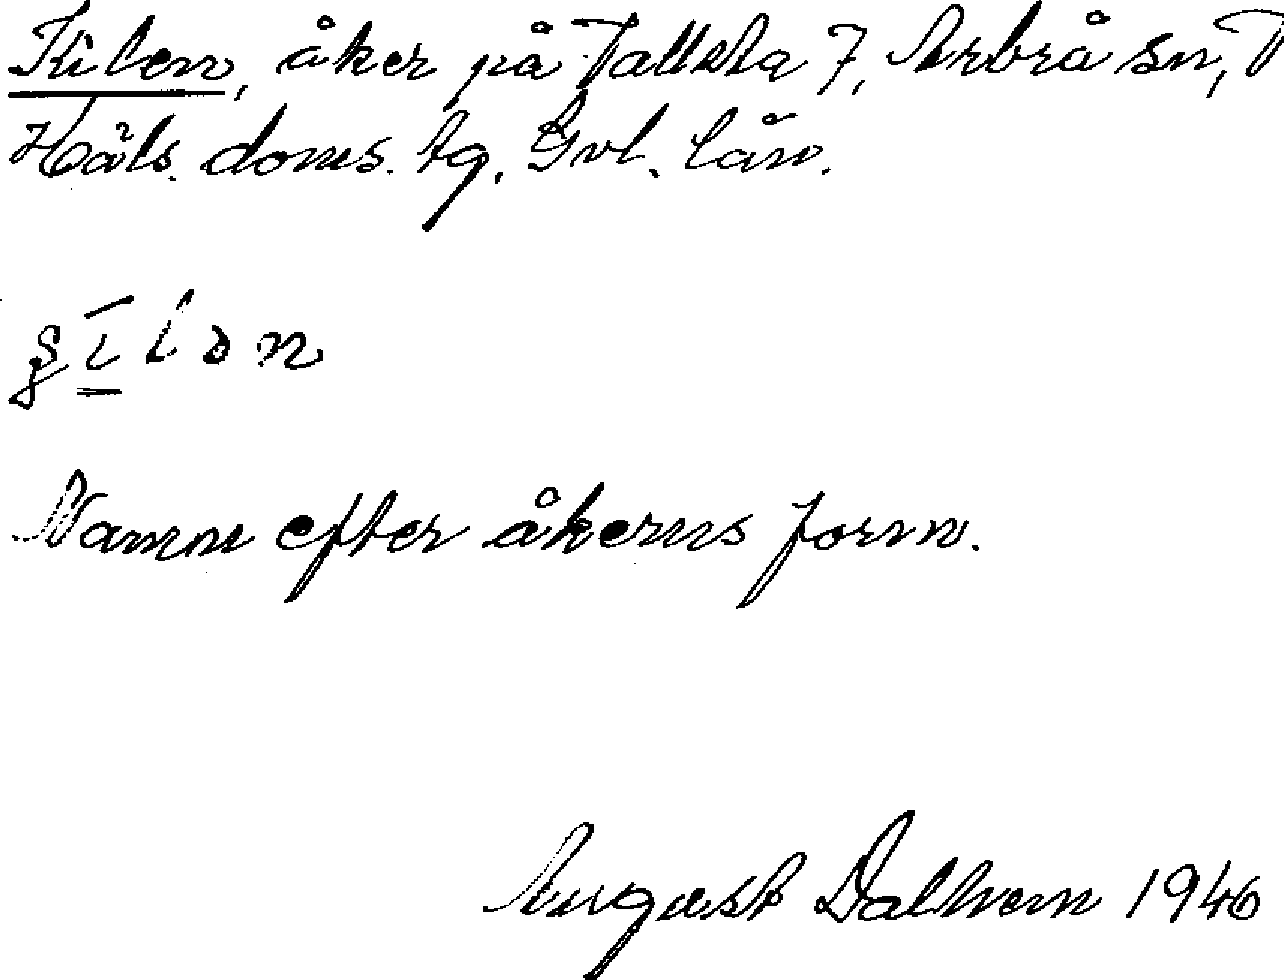 Kilen, åker på Vallsta 7, Arbrå sn, V
Häls. doms. tg, Gvl. län.
Namn efter åkerns form.
August Dalhem 1946